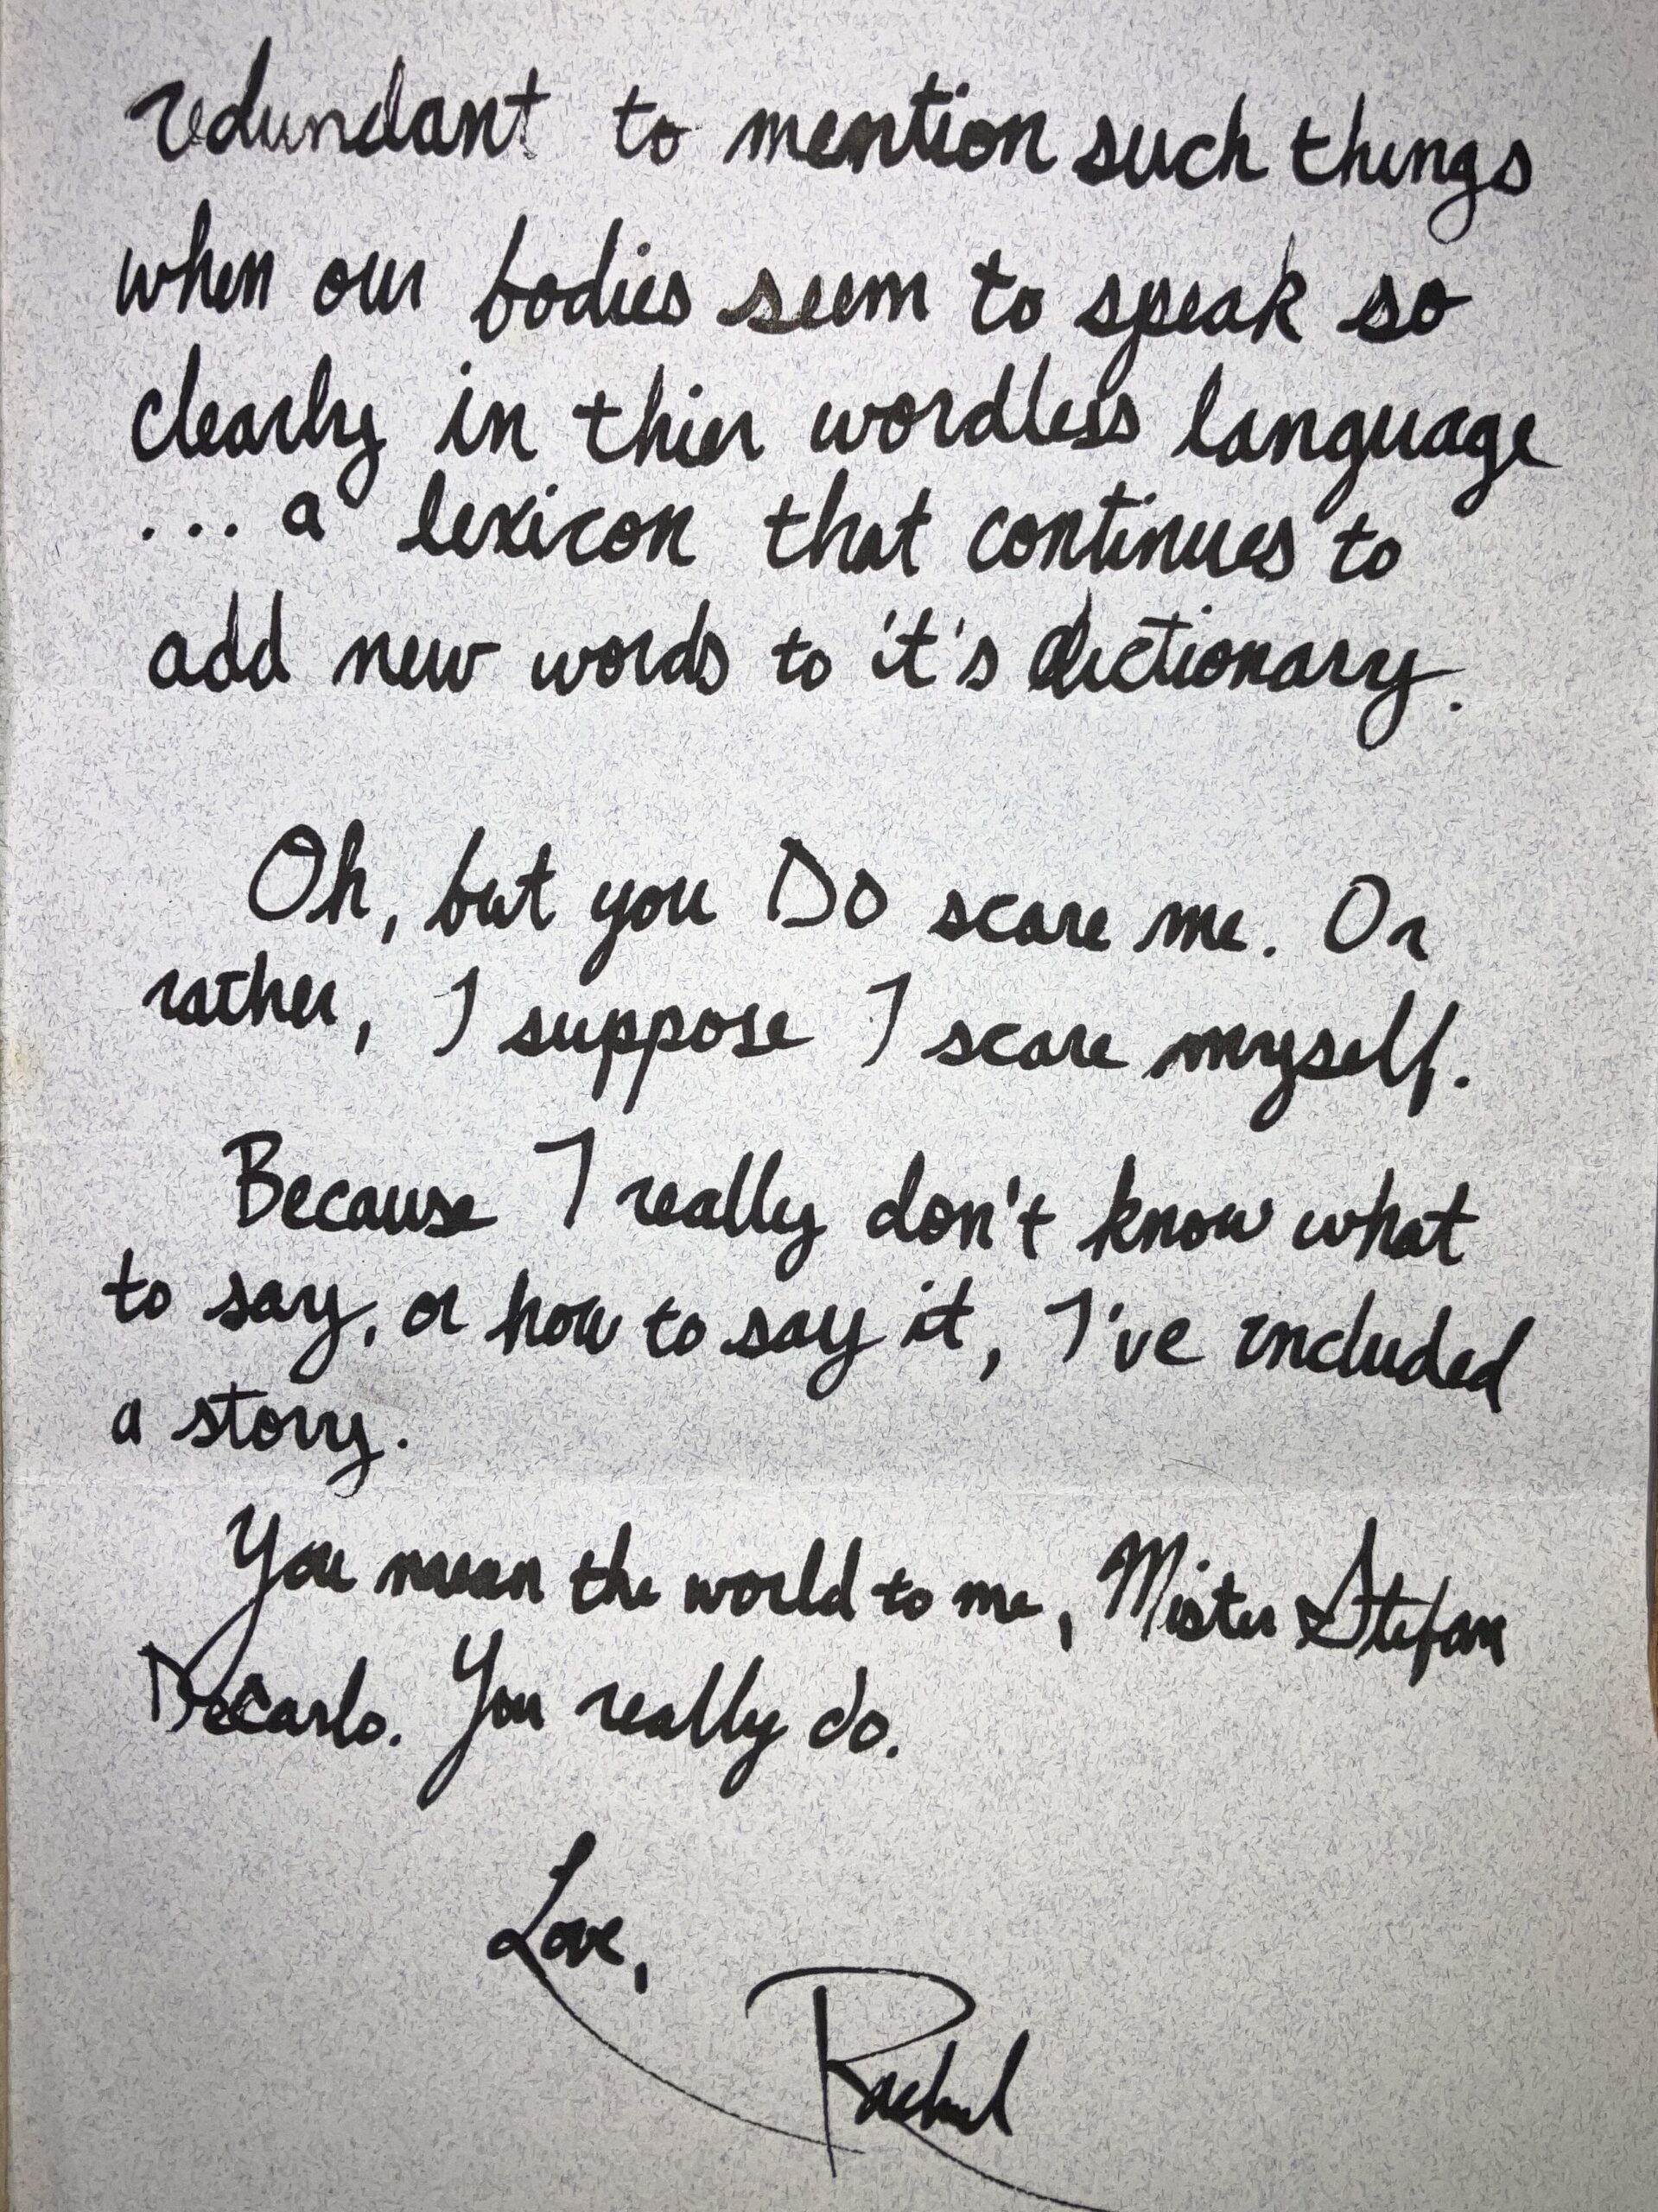 redundant to mention such things
when our bodies seem to speak so
clearly in thier wordless language
... a lexicon that continues to
add new words to it's dictionary.
Oh, but you DO scare me. Or
rather, I suppose I scare myself.
Because I really don't know what
to say, or how to say it, I've included
a story.
You mean the world to me, Mister Stefan
DeCarlo. You really do.
Love,
Rachel